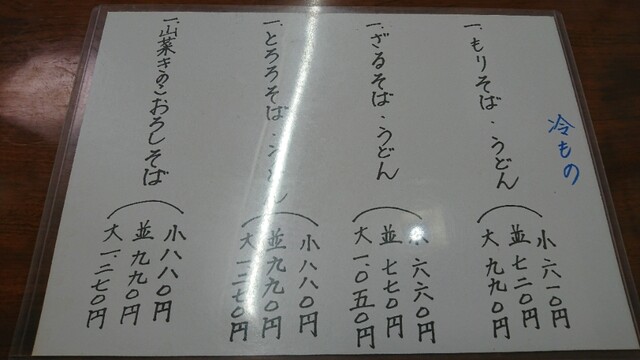 冷もの
一、もりそば・うどん
小 六一〇円
並 七二〇円
大 九九〇円
一、ざるそば・うどん
小 六六〇円
並 七七〇円
大 一、〇五〇円
一、とろろそば・うどん
小 八八〇円
並 九九〇円
大 一、二七〇円
一、山菜きのこおろしそば
小 八八〇円
並 九九〇円
大 一、二七〇円